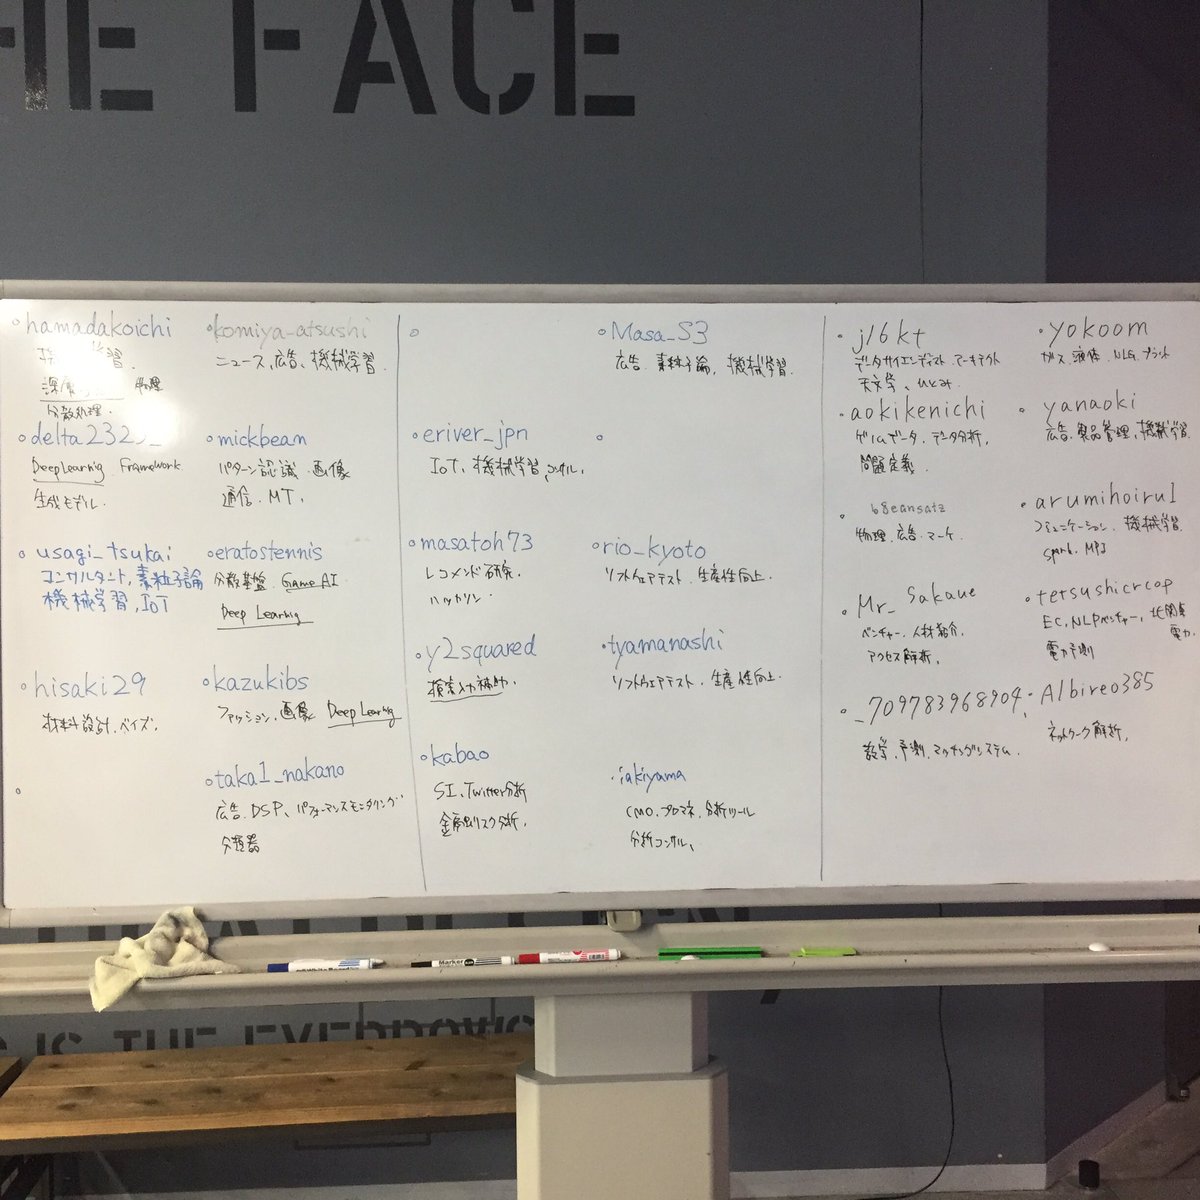 HE FACE
hamadakoichi
学習.
深層
分散処理.
delta2323_
DeepLearnig Framework
生成モデル.
usagi_tsukai
コンサルタント, 素粒子論
機械学習, IoT
hisaki29
材料設計、ベイズ.
komiya_atsushi
ニュース, 広告、機械学習
mickbean
パターン認識. 画像
通信. MT.
eratostennis
分散基盤. Game AI.
Deep Learnig
kazukibs
ファッション. 画像 Deep Learnig
taka1_nakano
広告. DSP、パフォーマンスモニタリング
分類器
eriver_jpn
IoT、機械学習, コンサル.
masatoh73
レコメンド研究.
ハッカソン.
y2squared
検索入力補助.
kabao
SI、Twitter分析
金融リスク分析.
Masa_S3
広告. 素粒子論, 機械学習.
rio_kyoto
ソフトウェアテスト. 生産性向上.
tyamanashi
ソフトウェアテスト. 生産性向上.
iakiyama
CMO. プロマネ. 分析ツール
分析コンサル、
j16kt
データサイエンティスト. アーキテクト
天文学、ひとみ.
aokikenichi
ゲームデータ、データ分析.
問題定義.
68eansatz
物理. 広告. マーケ.
Mr_Sakaue
ベンチャー. 人材紹介.
アクセス解析.
_709783968904.
数学. 予測. マッチングシステム.
yokoom
ガス. 液体. NLG. プラント
yanaoki
広告. 製品管理. 機械学習.
arumihoiru1
コミュニケーション. 機械学習.
spark. MPI
tetsushicrcop
EC, NLPベンチャー.
電力.
電力予測
Albireo385
ネットワーク解析.
Marker
IS THE EYEBROWS